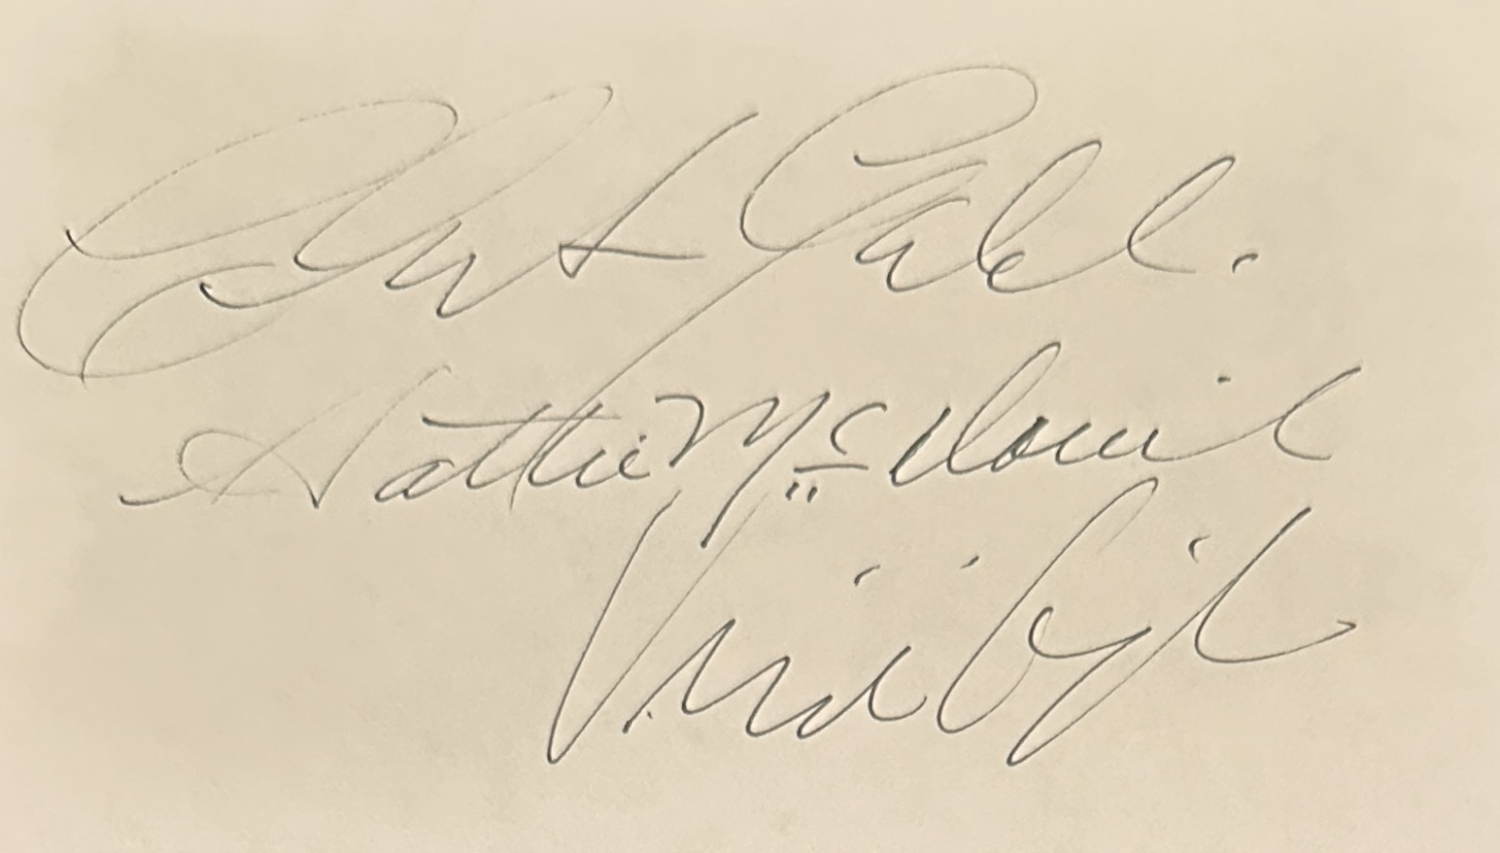 Clark Gable.
Hattie McDaniel
Vivien Leigh